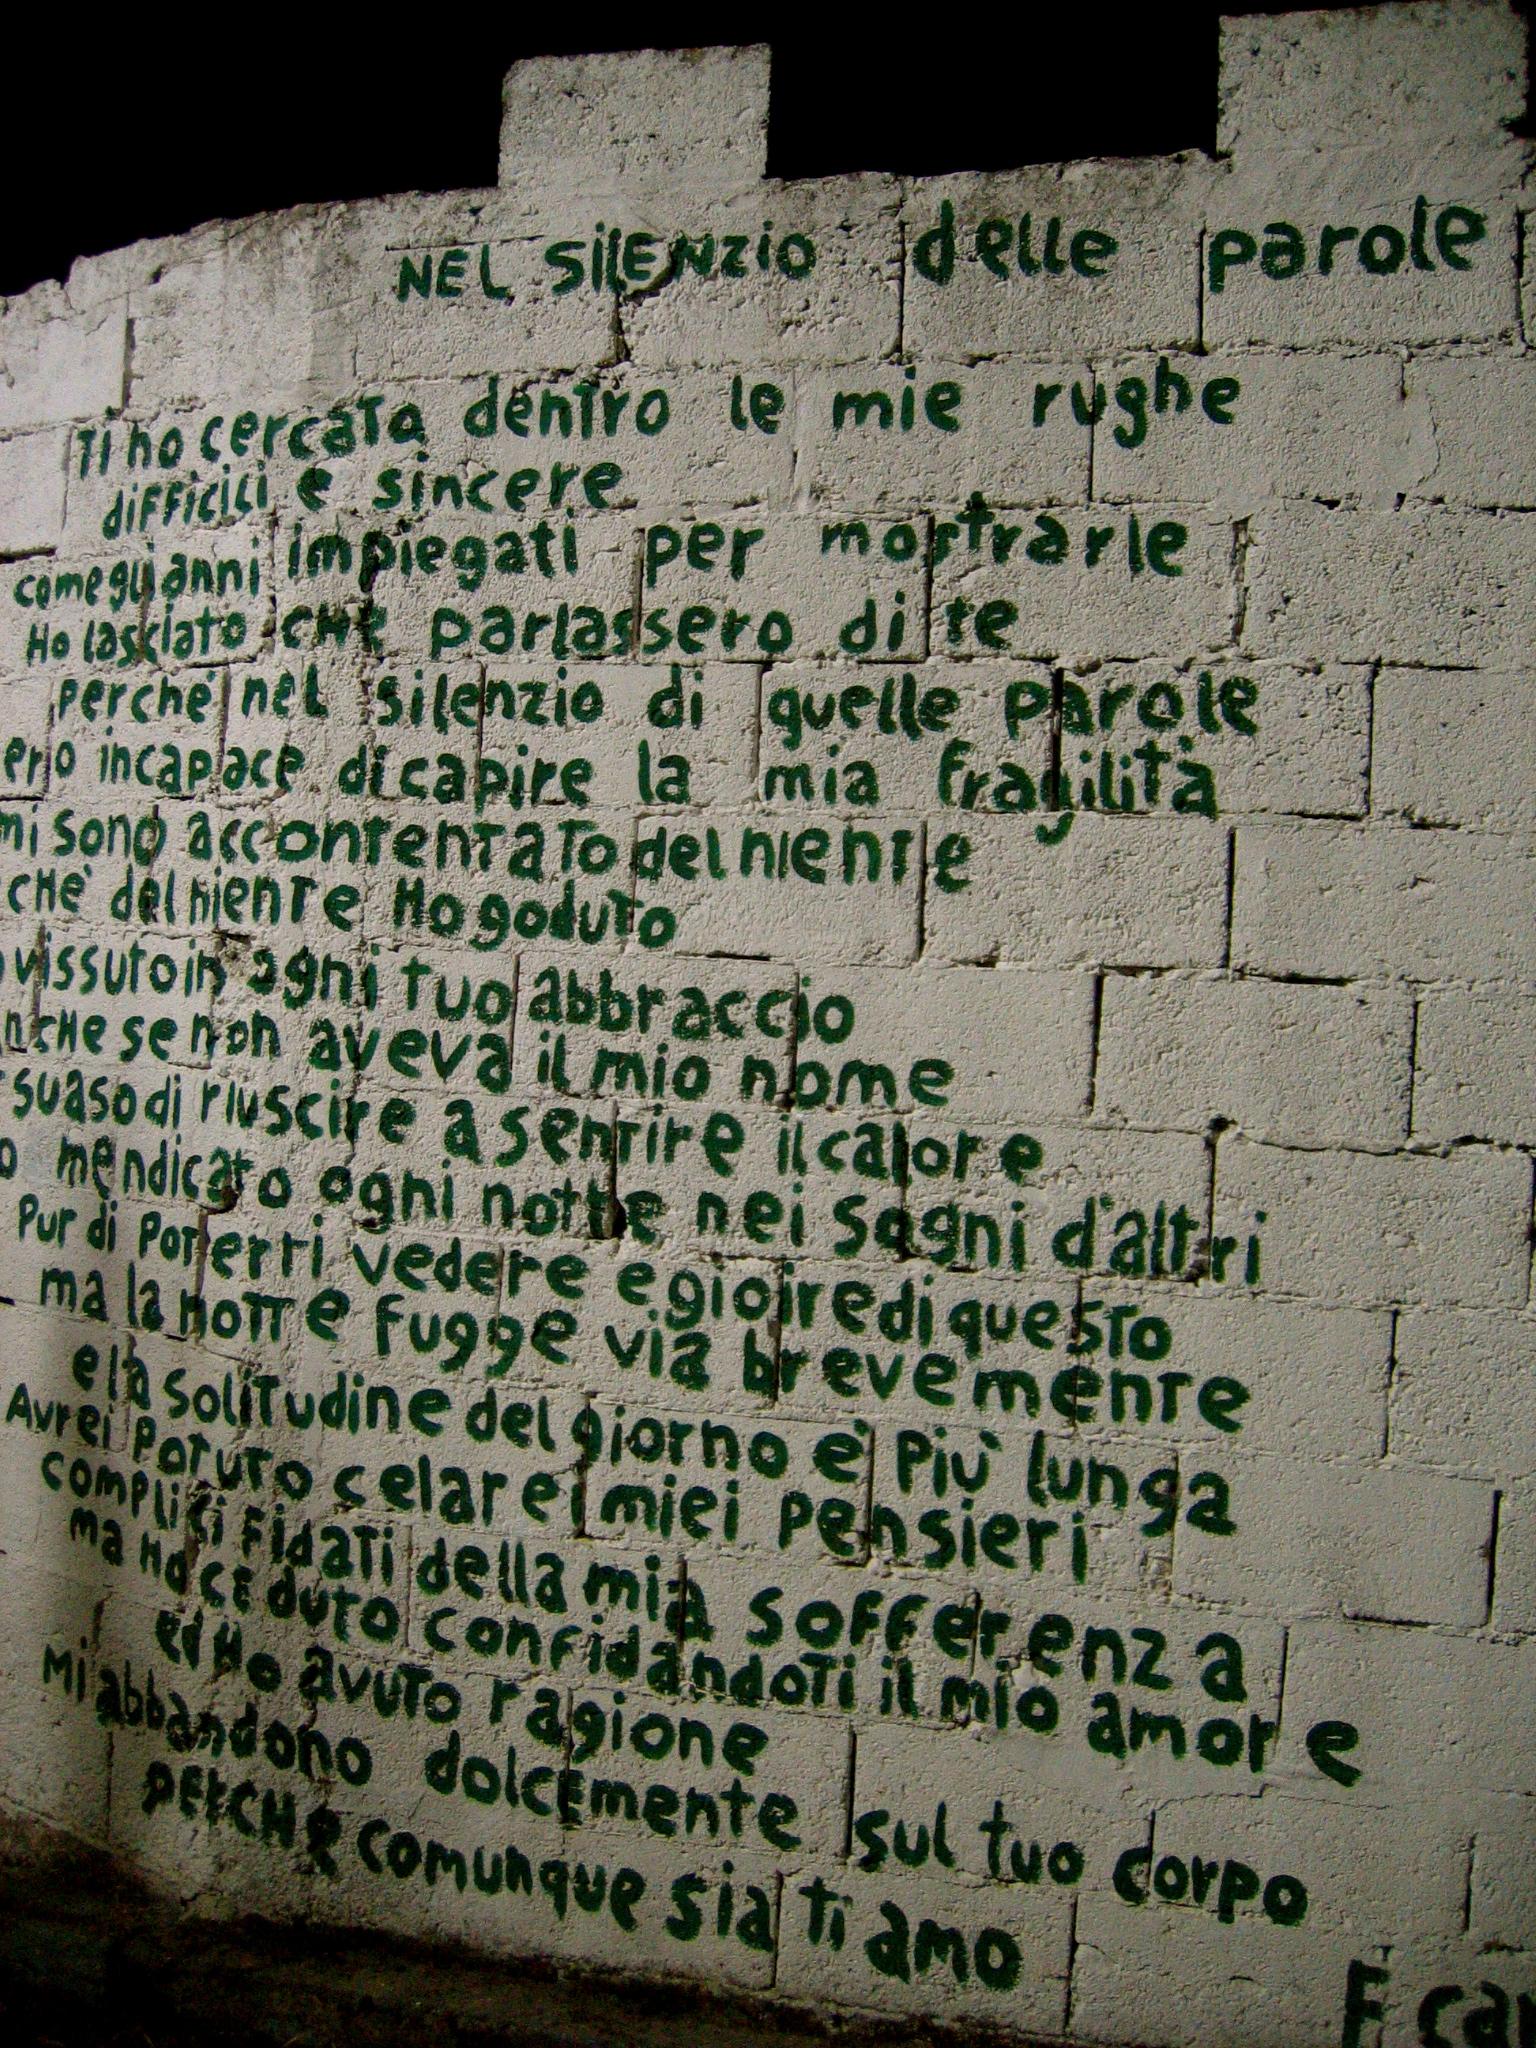 NEL SilENZio delle parole
Ti ho cercata dentro le mie rughe
difficili e sincere
come gli anni impiegati per mostrarle
Ho lasciato che parlassero di te
perché nel silenzio di quelle parole
ero incapace di capire la mia fragilità
mi sono accontentato del niente
CHè del niente Ho goduto
vissuto in ogni tuo abbraccio
nche se non aveva il mio nome
suaso di riuscire a sentire il calore
o mendicato ogni notte nei sogni d'altri
Pur di poterti vedere e gioire di questo
ma la notte fugge via brevemente
e la solitudine del giorno è più lunga
Avrei potuto celare i miei pensieri
complici fidati della mia sofferenza
ma Ho ceduto confidandoti il mio amore
ed Ho avuto ragione
Mi abbandono dolcemente sul tuo corpo
PERCHè comunque sia ti amo
F ca